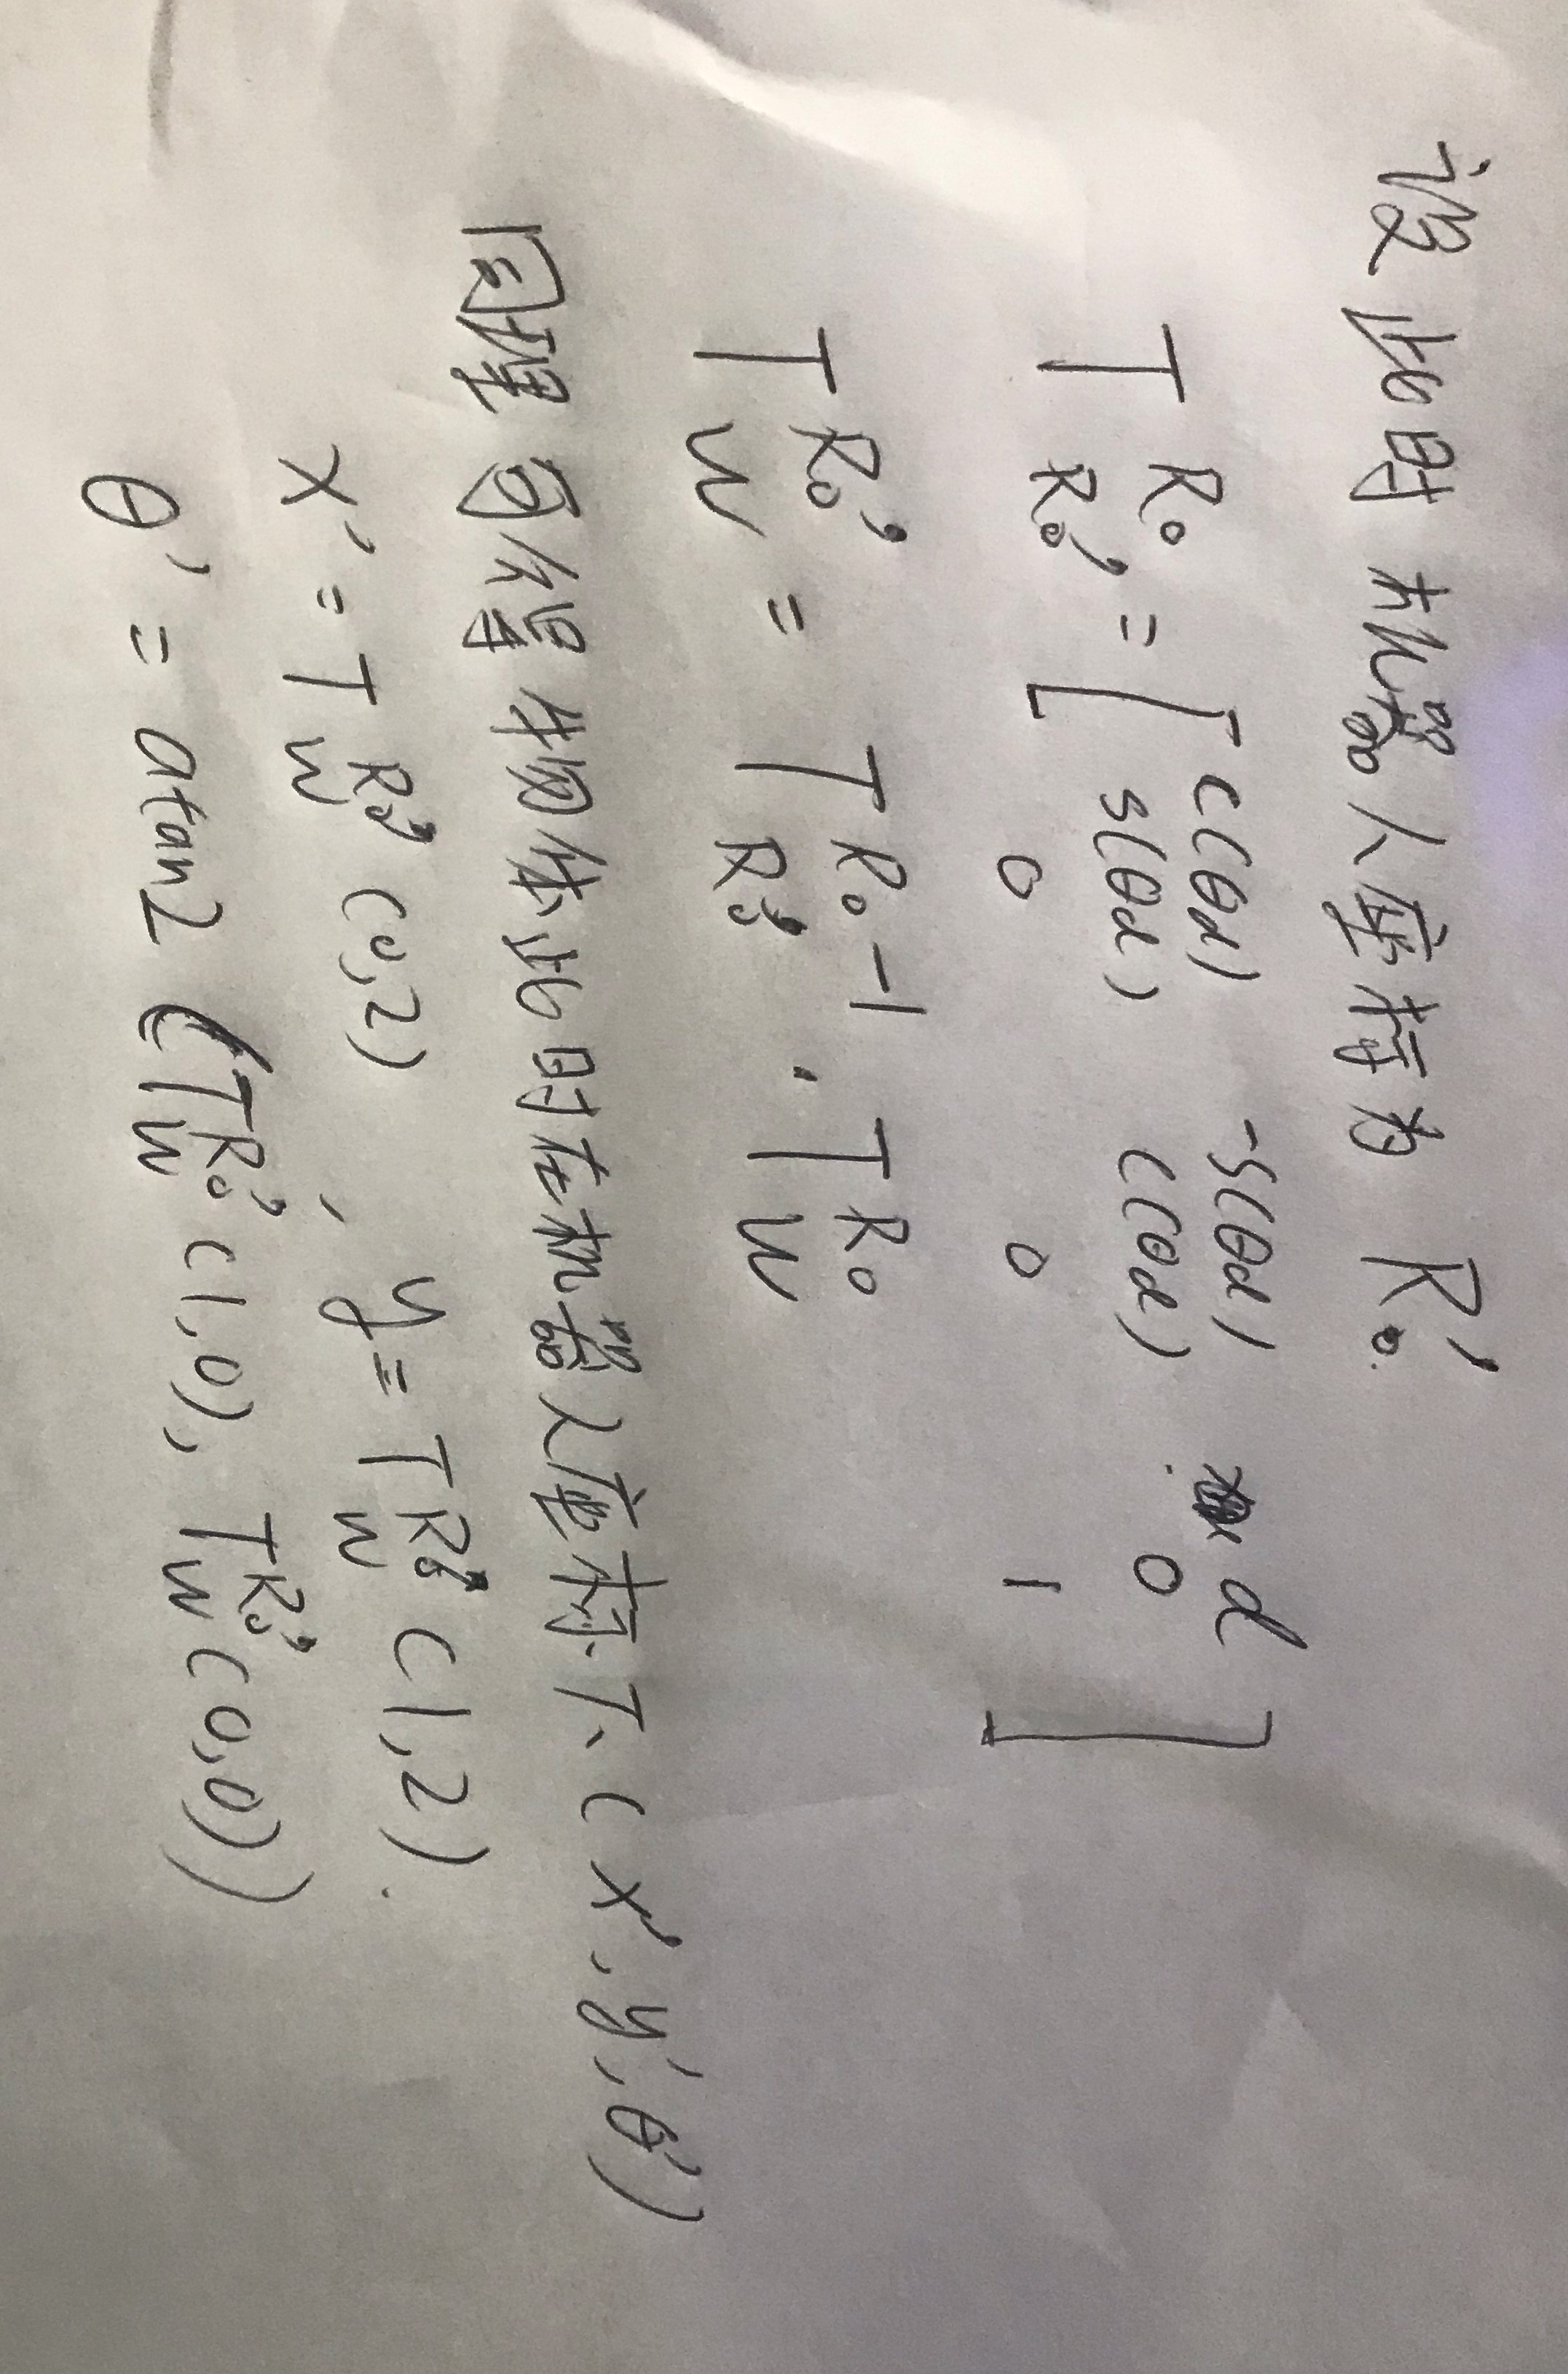 设此时机器人座标为 R₀'.
T^{R₀}_{R₀'} = [ c(θd) -s(θd) d
s(θd) c(θd) 0
0 0 1 ]
T^{R₀'}_{W} = T^{R₀ -1}_{R₀'} · T^{R₀}_{W}
同理可得物体此时在机器人座标下 (x', y', θ')
x' = T^{R₀'}_{W} (0,2) , y = T^{R₀'}_{W} (1,2).
θ' = atan2 (T^{R₀'}_{W} (1,0), T^{R₀'}_{W} (0,0))